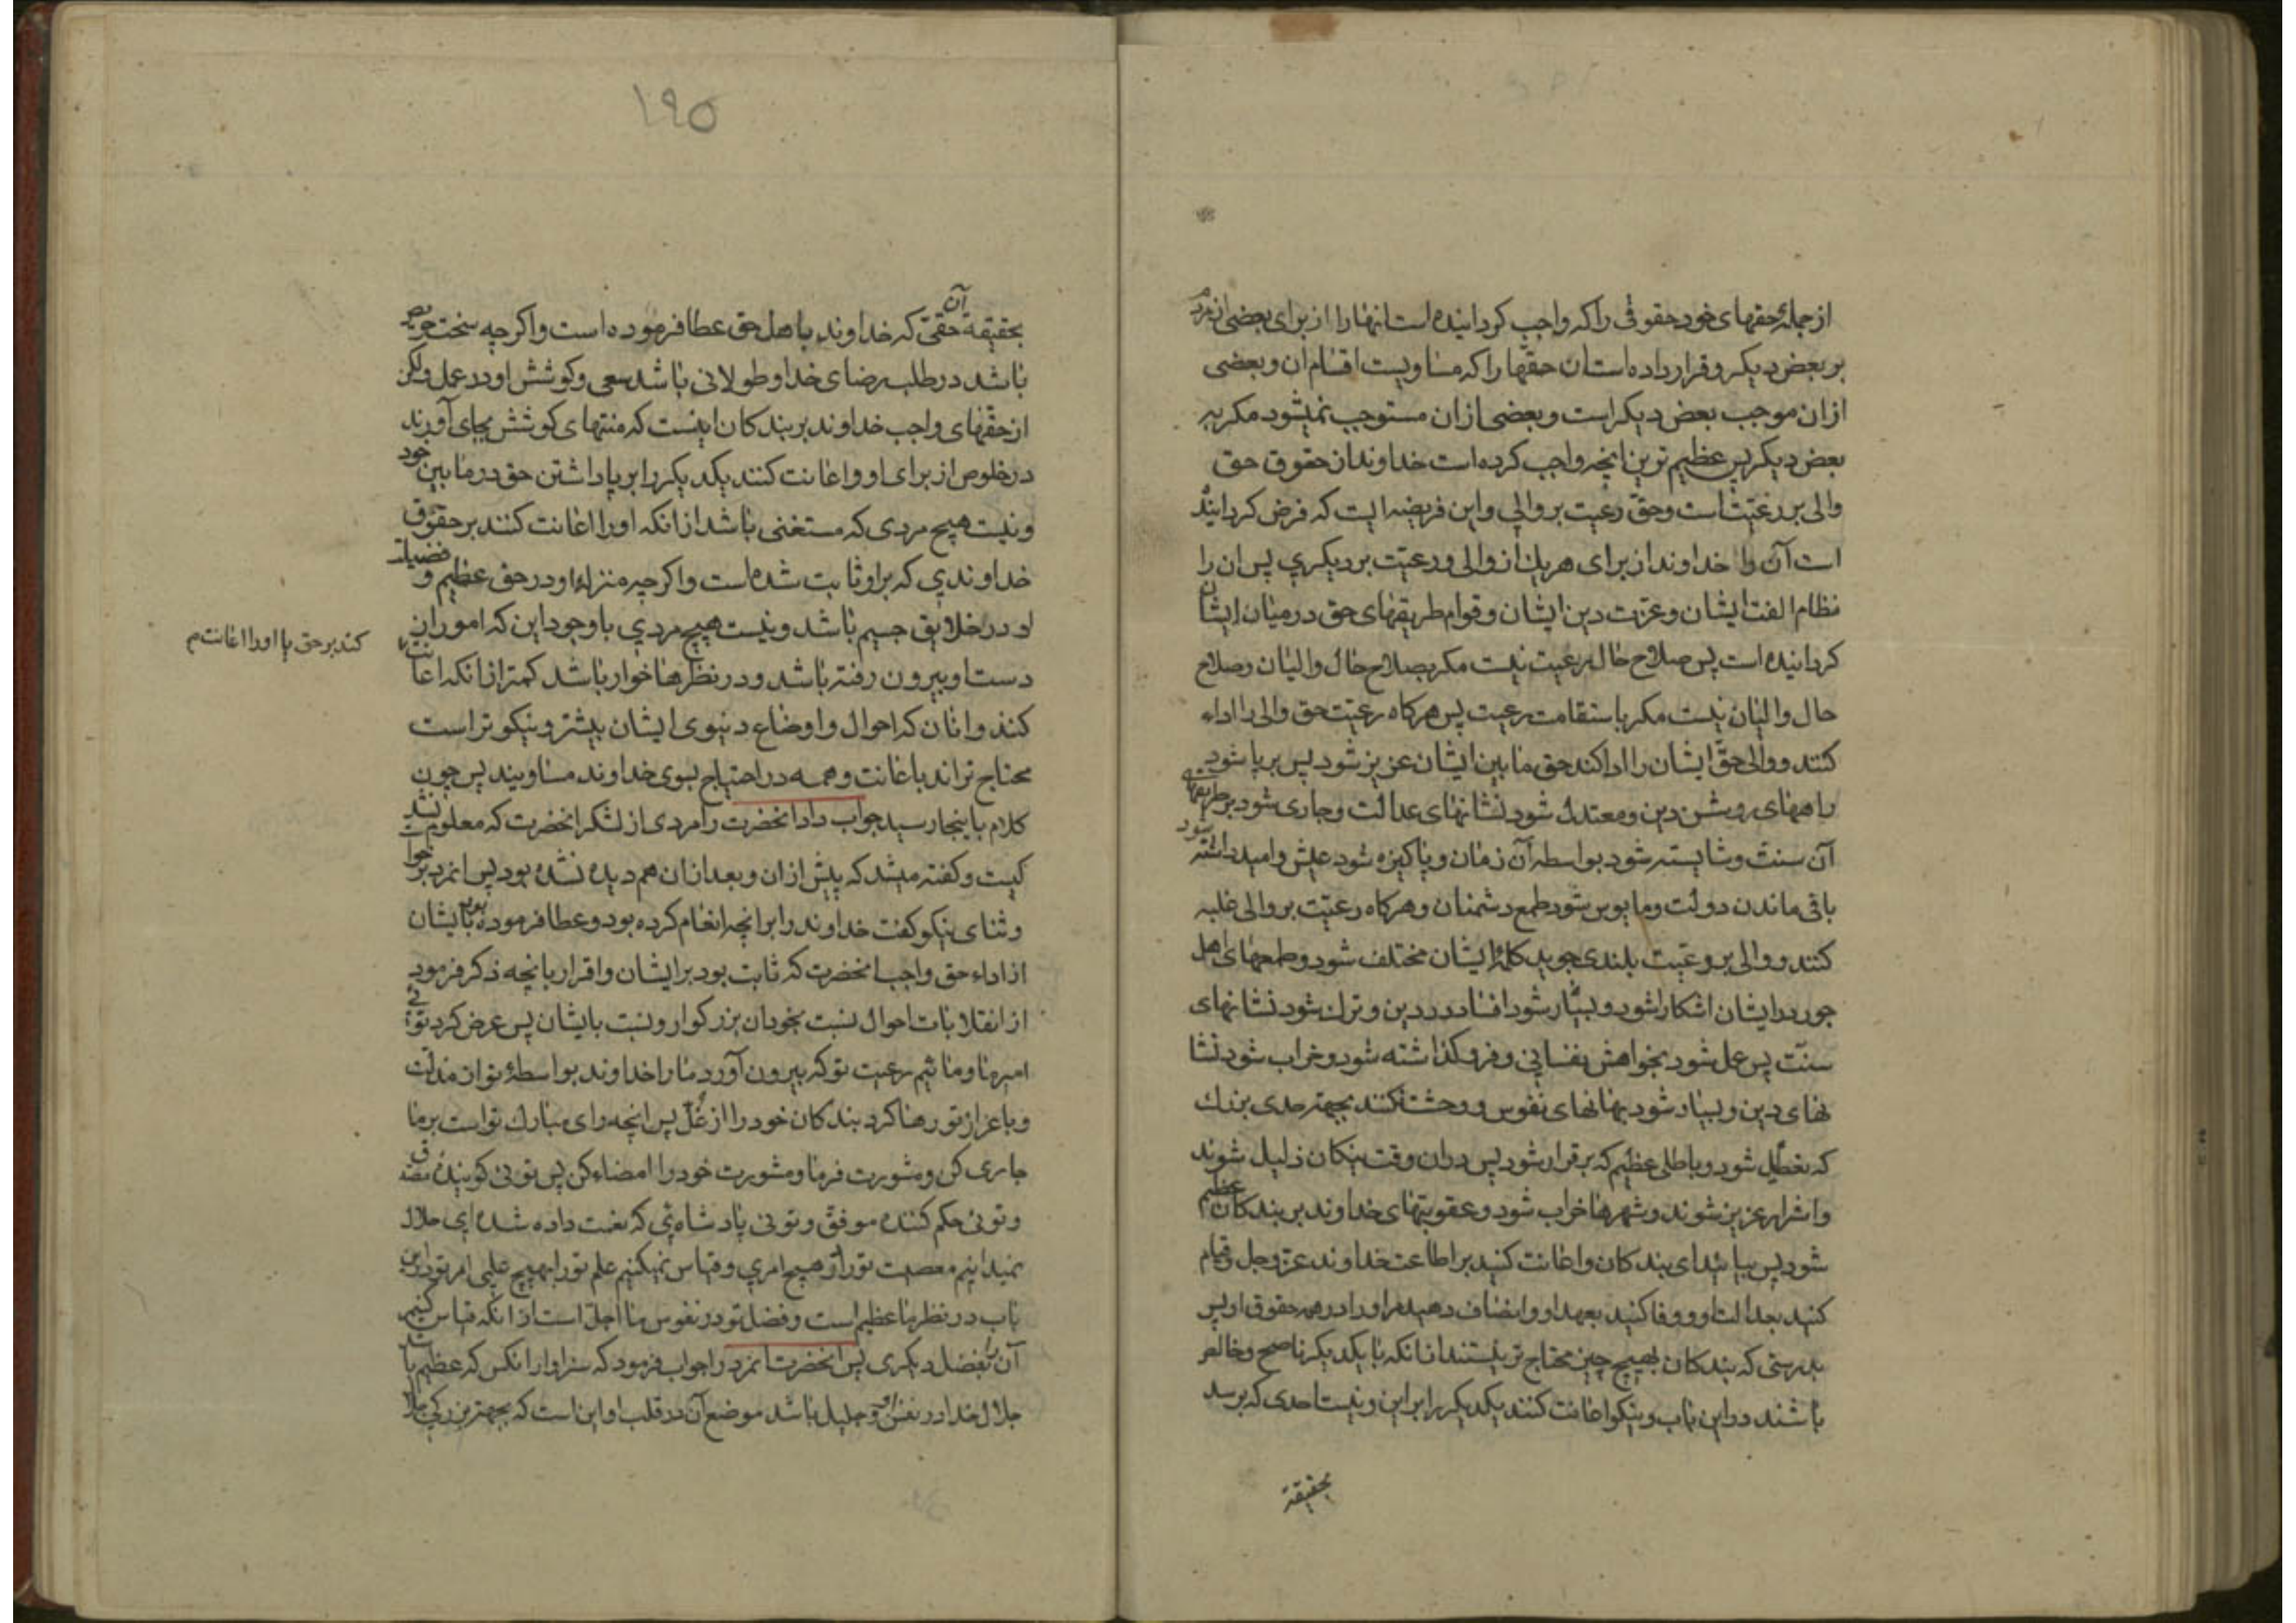 از جملهٔ حقهای خود حقوقی را که واجب کردانیده است انها را از برای بعضی از مردم
بر بعض دیکر و قرار داده است ان حقّها را که مساویست اقسام ان و بعضی
از ان موجب بعض دیکر است و بعضی از ان مستوجب نمیشود مکر به
بعض دیکر پس عظیم ترین انچه واجب کرده است خداوند ان حقوق حق
والی بر رعیّت است و حقّ رعیت بر والی و این فریضه ایست که فرض کردانیده
است آن را خداوند از برای هر یك از والی و رعیّت بر دیکری پس ان را
نظام الفت ایشان و عزت دین ایشان و قوام طریقهای حق در میان ایشان
کردانیده است پس صلاح حال رعیت نیست مکر بصلاح حال والیان و صلاح
حال والیان نیست مکر باستقامت رعیت پس هر کاه رعیّت حق والی را اداء
کنند و والی حقّ ایشان را ادا کند حق ما بین ایشان عزیز شود پس بر پا شود
راههای روشن دین و معتدل شود نشانهای عدالت و جاری شود بر طریقهای
آن سنت و شایسته شود بواسطه آن زمان و پاکیزه شود عیش و امید داشته شود
باقی ماندن دولت و مایوس شود طمع دشمنان و هر کاه رعیّت بر والی غلبه
کنند و والی بر رعیّت بلندی جوید کلمهٔ ایشان مختلف شود و طمعهای اهل
جور در ایشان اشکارا شود و بسیار شود افساد در دین و ترك شود نشانهای
سنّت پس عمل شود بخواهش نفسانی و فرو کذاشته شود و خراب شود نشا
نهای دین و بسیار شود بهانهای نفوس و وحشت نکنند بجهتر حدی بزرك
که تعطیل شود و باطلی عظیم که برقرار شود پس در ان وقت نیکان ذلیل شوند
و اشرار عزیز شوند و شهرها خراب شود و عقوبتهای خداوند بر بندکان عظیم
شود پس بیائید ای بندکان و اعانت کنید بر اطاعت خداوند عزّ و جل و قیام
کنید بعدالت او و وفا کنید بعهد او و انصاف دهید مر او را در همه حقوق او پس
بدرستی که بندکان بهیچ چیز محتاج تر نیستند از انکه با یکدیکر ناصح و خالص
باشند در این باب و نیکو اعانت کنند یکدیکر را بر این و نیست احدی که برسد
بحقیقة
۱۹۵
بحقیقة آن حقّی که خداوند باهل حق عطا فرموده است و اکر چه سخت حریص
باشد در طلب رضای خدا و طولانی باشد سعی و کوشش او در عمل ولکن
از حقّهای واجب خداوند بر بندکان اینست که منتهای کوشش بجای آورند
در خلوص از برای او و اعانت کنند یکدیکر را بر پا داشتن حق در ما بین خود
و نیست هیچ مردی که مستغنی باشد از انکه او را اعانت کنند بر حقوق
خداوندی که بر او ثابت شده است و اکر چه منزلهٔ او در حق عظیم و فضیلت
او در خلایق جسیم باشد و نیست هیچ مردی با وجود این که امور از
دست او بیرون رفته باشد و در نظرها خوار باشد کمتر از انکه اعانت
کند بر حق یا او را اعانت م
کنند و انان که احوال و اوضاع دنیوی ایشان بیشتر و نیکوتر است
محتاج تراند باعانت و همه در احتیاج بسوی خداوند مساویند پس چون
کلام باینجا رسید جواب داد انحضرت را مردی از لشکر انحضرت که معلوم نشد
کیست و کفته میشد که پیش از ان و بعد از ان هم دیده نشده بود پس انمرد برخواست
و ثنای نیکو کفت خداوند را بر انچه انعام کرده بود و عطا فرموده بود بایشان
از اداء حق واجب انحضرت که ثابت بود بر ایشان و اقرار بانچه ذکر فرمود
از انقلابات احوال نسبت بخود ان بزرکوار و نسبت بایشان پس عرض کرد توئی
امیر ما و مائیم رعیت تو که بیرون آورد ما را خداوند بواسطهٔ تو از مذلّت
و باعزاز تو رها کرد بندکان خود را از غُلّ پس انچه رای مبارك تو است بر ما
جاری کن و مشورت فرما و مشورت خود را امضاء کن پس توئی کویندهٔ مصدّق
و توئی حکم کننده موفّق و توئی پادشاهی که نعمت داده شدهای حلال
نمیدانیم معصیت تو را در هیچ امری و قیاس نمیکنیم علم تو را بهیچ علمی امر تو در این
باب در نظر ما عظیم است و فضل تو در نفوس ما اجلّ است از انکه قیاس کنیم
آن را بفضل دیکری پس انحضرت انمرد را جواب فرمود که سزاوار انکس که عظیم باشد
جلال خدا در نفس او و جلیل باشد موضع آن در قلب او این است که بجهتر بزرکی جلال